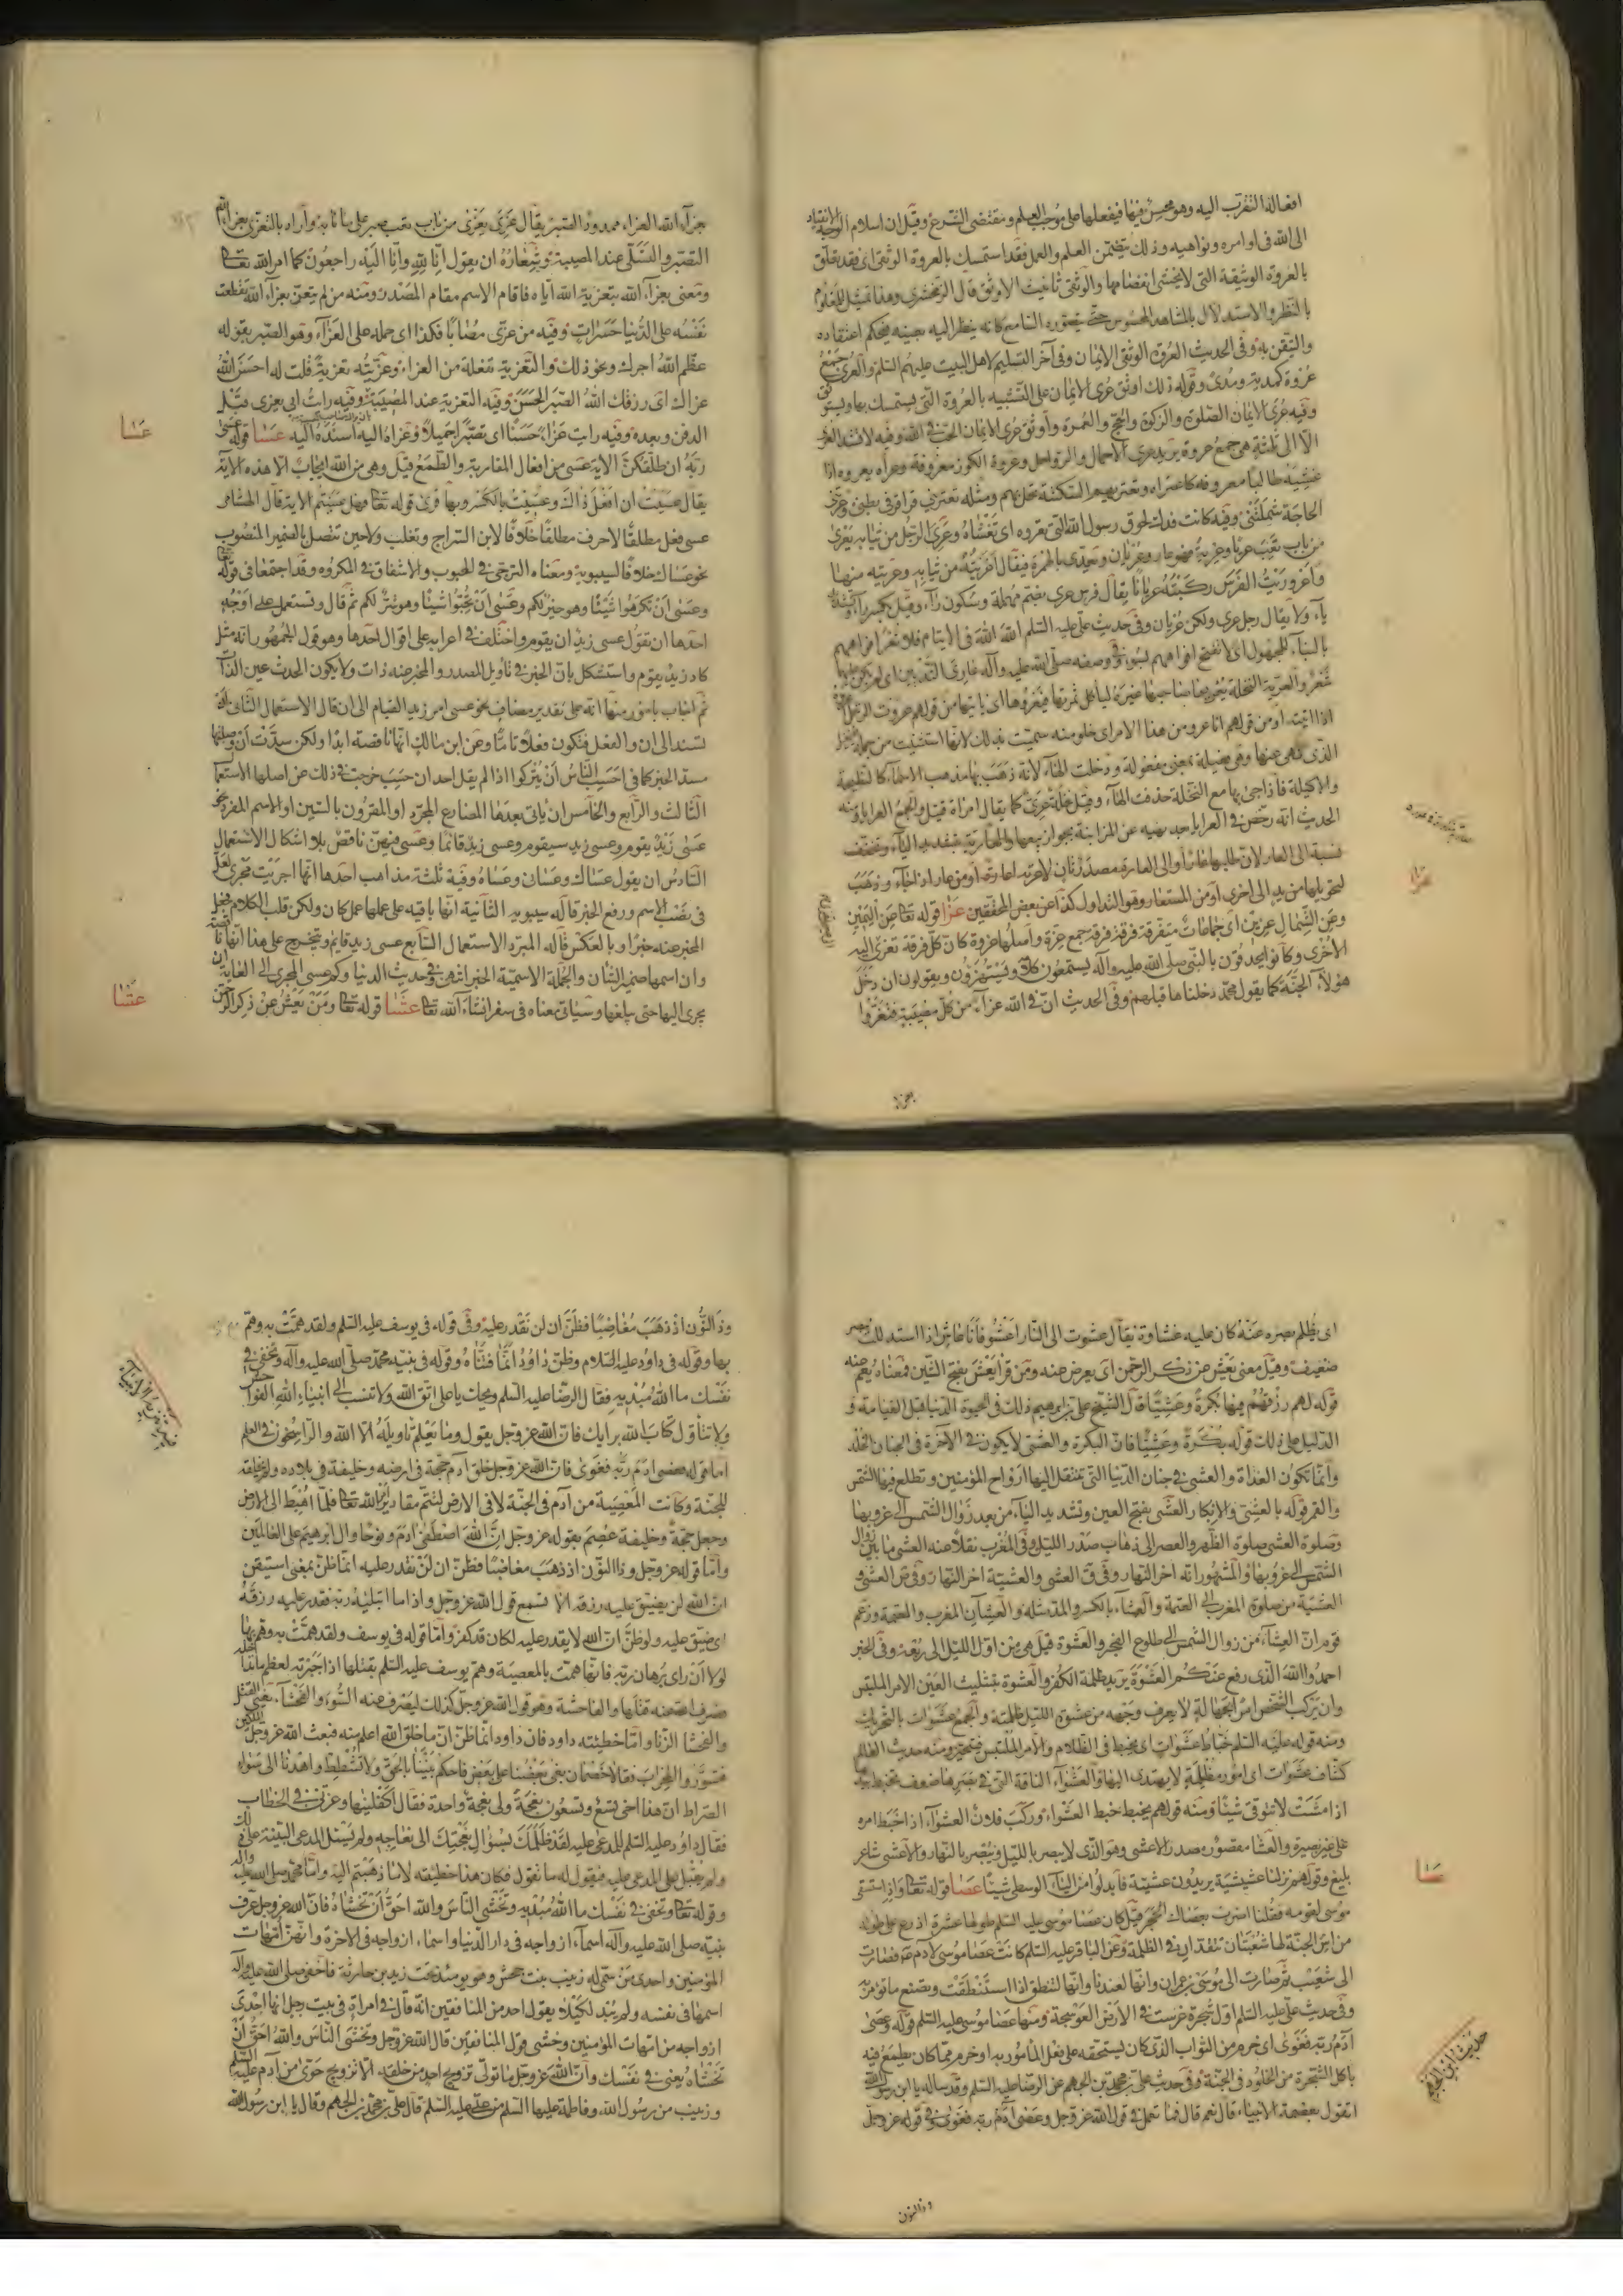 افعاله التقرب اليه وهو محسن فيها فيفعلها على موجب العلم ومقتضى الشرع وقيل ان اسلام الوجه الانقياد
الى الله فى اوامره ونواهيه وذلك يتضمن العلم والعمل فقد استمسك بالعروة الوثقى اى فقد تعلق
بالعروة الوثيقة التى لا يخشى انفصامها والوثقى تانيث الاوثق قال الزمخشرى وهذا تمثيل للمعلوم
بالنظر والاستدلال بالمشاهد المحسوس حتى يتصوره السامع كانه ينظر اليه بعينه فيحكم اعتقاده
والتيقن به وفى الحديث العروة الوثقى الايمان وفى آخر التسليم لاهل البيت عليهم السلم والعرى جمع
عروة كمدية ومدى وقوله ذلك اوثق عرى الايمان على التشبيه بالعروة التى يستمسك بها ويستوثق
وفيه عرى الايمان الصلوة والزكوة والحج والعمرة واوثق عرى الايمان الحب فى الله وفيه لا تشد العرى
الا الى ثلثة هى جمع عروة يريد عرى الاحمال والرواحل وعروة الكوز معروفة وعراه يعروه اذا
غشيه طالبا معروفه كاعتراه وتعتريهم السكتة تحل بهم ومثله تعترنى قراقر فى بطنى وعرتنى
الحاجة شملتنى وفيه كانت فدك لحقوق رسول الله التى تعروه اى تغشاه وعرى الرجل من ثيابه يعرى
من باب تعب عريا وعرية فهو عار وعريان ويعدى بالهمزة فيقال اعريته من ثيابه وعريته منها
واعروريت الفرس ركبته عريانا يقال فرس عرى بضم مهملة وسكون راء وقيل بكسر راء وتشديد
ياء ولا يقال رجل عرى ولكن عريان وفى حديث على عليه السلم الله الله فى الايتام فلا تعر افواههم
بالبناء للمجهول اى لا تفتح افواههم لسؤ وفى وصفه صلى الله عليه وآله عارى الثديين اى لم يكن عليها
شعر والعرية النخلة يعريها صاحبها غيره لياكل ثمرتها فيعروها اى ياتيها من قولهم عروت الرجل
اذا اتيته او من قولهم انا عرو من هذا الامر اى خلو منه سميت بذلك لانها استثنيت من جملة النخيل
الذى نهى عنها وهى فعيلة بمعنى مفعولة ودخلت الهاء لانه ذهب بها مذهب الاسماء كالنطيحة
والاكيلة فاذا جئ بها مع النخلة حذفت الهاء وقيل نخلة عرى كما يقال امراة قتيل والجمع العرايا ومنه
الحديث انه رخص فى العرايا بعد نهيه عن المزابنة بجواز بيعها والعارية بتشديد الياء وتخفف
نسبة الى العار لان طلبها عار او الى العارة مصدر ثان لاعرته اعارة او من عار اذا جاء وذهب
لتحويلها من يد الى اخرى او من المستعار وهو التداول كذا عن بعض المحققين عزا قوله تعا عن اليمين
وعن الشمال عزين اى جماعات متفرقة فرقة فرقة جمع عزة واصلها عزوة كان كل فرقة تعزى الى
الاخرى وكانوا يحدقون بالنبى صلى الله عليه وآله يستمعون كلامه ويستهزؤن ويقولون ان دخل
هؤلاء الجنة كما يقول محمد دخلناها قبلهم وفى الحديث ان فى الله عزاء من كل مصيبة فتعزوا
عزا
بعزا
جزاء الله العزاء ممدود الصبر يقال عزى يعزى من باب تعب صبر على ما نابه واراد بالتعزى بعزاء الله
التصبر والتسلى عند المصيبة وشعاره ان يقول انا لله وانا اليه راجعون كما امر الله تعا
ومعنى بعزاء الله بتعزية الله اياه فاقام الاسم مقام المصدر ومنه من لم يتعز بعزاء الله تقطعت
نفسه على الدنيا حسرات وفيه من عزى مصابا فكذا اى حمله على العزاء وهو الصبر بقوله
عظم الله اجرك ونحو ذلك والتعزية تفعلة من العزاء وعزيته تعزية قلت له احسن الله
عزاك اى رزقك الله الصبر الحسن وفيه التعزية عند المصيبة وفيه رايت ابى يعزى قبل
الدفن وبعده وفيه رايت عزاء حسنا اى تصبرا جميلا وعزاه اليه اسنده اليه عسا قوله عسى
ربه ان طلقكن الاية عسى من افعال المقاربة والطمع قيل وهى من الله ايجاب الا هذه الاية
يقال عسيت ان افعل ذاك وعسيت بالكسر وبها قرئ قوله تعا فهل عسيتم الاية قال ابن هشام
عسى فعل مطلقا لا حرف مطلقا خلافا لابن السراج وتغلب ولا حين تتصل بالضمير المنصوب
نحو عساك خلافا لسيبويه ومعناه الترجى فى المحبوب والاشفاق فى المكروه وقد اجتمعا فى قوله تعا
وعسى ان تكرهوا شيئا وهو خير لكم وعسى ان تحبوا شيئا وهو شر لكم ثم قال وتستعمل على اوجه
احدها ان تقول عسى زيد ان يقوم واختلف فى اعرابه على اقوال احدها وهو قول الجمهور انه مثل
كاد زيد يقوم واستشكل بان الخبر فى تاويل المصدر والمخبر عنه ذات ولا يكون الحدث عين الذات
ثم اجاب بامور منها انه على تقدير مضاف نحو عسى امر زيد القيام الى ان قال الاستعمال الثانى ان
تسند الى ان والفعل فتكون فعلا تاما وعن ابن مالك انها ناقصة ابدا ولكن سدت ان وصلتها
مسد الخبر كما فى احسب الناس ان يتركوا اذ لم يقل احد ان حسب خرجت فى ذلك عن اصلها الاستعمال
الثالث والرابع والخامس ان ياتى بعدها المضارع المجرد او المقرون بالسين او الاسم المفرد نحو
عسى زيد يقوم وعسى زيد سيقوم وعسى زيد قائما وعسى فيهن ناقص بلا اشكال الاستعمال
السادس ان يقول عساك وعسان وعساه وفيه ثلثة مذاهب احدها انها اجريت مجرى لعل
فى نصب الاسم ورفع الخبر قاله سيبويه الثانية انها باقيه على عملها عمل كان ولكن قلب الكلام فجعل
المخبر عنه خبرا وبالعكس قاله المبرد الاستعمال السابع عسى زيد قايم ويتخرج على هذا انها ناقصة
وان اسمها ضمير الشان والجملة الاسمية الخبر انتهى وفى حديث الدنيا وكم عسى المجرى الى الغاية ان
يجرى اليها حتى يبلغها وسياتى معناه فى سفر انشاء الله تعا عشا قوله تعا ومن يعش عن ذكر الرحمن
عسا
عشا
اى يظلم بصره عنه كان عليه غشاوة يقال عشوت الى النار اعشو فانا عاش اذا استدللت ببصر
ضعيف وقيل معنى يعش عن ذكر الرحمن اى يعرض عنه ومن قرا يعش بفتح الشين فمعناه يعم عنه
قوله لهم رزقهم فيها بكرة وعشيا قال الشيخ على بن ابراهيم ذلك فى الحيوة الدنيا قبل القيامة و
الدليل على ذلك قوله بكرة وعشيا فان البكرة والعشى لا يكون فى الآخرة فى الجنان الخلد
وانما تكون الغداة والعشى فى جنان الدنيا التى تنتقل اليها ارواح المؤمنين وتطلع فيها الشمس
والقمر قوله بالعشى والابكار العشى بفتح العين وتشديد الياء من بعد زوال الشمس الى غروبها
وصلوة العشى صلوة الظهر والعصر الى ذهاب صدر الليل وفى المغرب نقلا عنه العشى ما بين زوال
الشمس الى غروبها والمشهور انه اخر النهار وفى ق العشى والعشية اخر النهار وفى ص العشى و
العشية من صلوة المغرب الى العتمة والعشاء بالكسر والمد مثله والعشاآن المغرب والعتمة وزعم
قوم ان العشاء من زوال الشمس الى طلوع الفجر والعشوة قيل هى من اول الليل الى ربعه وفى الخبر
احمدوا الله الذى رفع عنكم العشوة يريد ظلمة الكفر والعشوة بتثليث العين الامر الملتبس
وان يركب الشخص امرا بجهالة لا يعرف وجهه من عشوة الليل ظلمته والجمع عشوات بالتحريك
ومنه قوله عليه السلم خباط عشوات اى يخبط فى الظلام والامر الملتبس فيتحير ومنه حديث العالم
كشاف عشوات اى امور مظلمة لا يهتدى اليها والعشواء الناقة التى فى بصرها ضعف تخبط بيدها
اذا مشت لا تتوقى شيئا ومنه قولهم يخبط خبط العشواء وركب فلان العشواء اذا خبط امره
على غير بصيرة والعشا مقصور مصدر الاعشى وهو الذى لا يبصر بالليل ويبصر بالنهار والاعشى شاعر
بليغ وقولهم نزلنا عشيشية يريدون عشيتة فابدلوا من الياء الوسطى شينا عصا قوله تعا واذ استسقى
موسى لقومه فقلنا اضرب بعصاك الحجر قيل كان عصا موسى عليه السلم طولها عشرة اذرع على طوله
من آس الجنة لها شعبتان تتقدان فى الظلمة وعن الباقر عليه السلم كانت عصا موسى لادم ع فصارت
الى شعيب ثم صارت الى موسى بن عمران وانها لعندنا وانها لتنطق اذا استنطقت وتصنع ما تؤمر به
وفى حديث على عليه السلم اول شجرة غرست فى الارض العوسجة ومنها عصا موسى عليه السلم قوله وعصى
آدم ربه فغوى اى خرم من الثواب الذى كان يستحقه على فعل المأمور به او خرم مما كان يطمع فيه
باكل الشجرة من الخلود فى الجنة وفى حديث على بن محمد بن الجهم عن الرضا عليه السلم وقد ساله يا ابن رسول الله
اتقول بعصمة الانبياء قال نعم قال فما تعمل فى قول الله عز وجل وعصى آدم ربه فغوى وفى قوله عز وجل
عصا
حديث ابن الجهم
وذالنون
وذا النون اذ ذهب مغاضبا فظن ان لن نقدر عليه وفى قوله فى يوسف عليه السلم ولقد همت به وهم
بها وقوله فى داود عليه السلام وظن داود انما فتناه وقوله فى نبيه محمد صلى الله عليه وآله وتخفى فى
نفسك ما الله مبديه فقال الرضا عليه السلم ويحك يا على اتق الله ولا تنسب الى انبياء الله الفواحش
ولا تتأول كتاب الله برايك فان الله عز وجل يقول وما يعلم تاويله الا الله والراسخون فى العلم
اما قوله عصى ادم ربه فغوى فان الله عز وجل خلق آدم حجة فى ارضه وخليفة فى بلاده ولم يخلقه
للجنة وكانت المعصية من آدم فى الجنة لا فى الارض لتتم مقادير امر الله تعا فلما اهبط الى الارض
وجعل حجة وخليفة عصم بقوله عز وجل ان الله اصطفى ادم ونوحا وال ابرهيم على العالمين
واما قوله عز وجل وذا النون اذ ذهب مغاضبا فظن ان لن نقدر عليه انما ظن بمعنى استيقن
ان الله لن يضيق عليه رزقه الا تسمع قول الله عز وجل واذا ما ابتليه ربه فقدر عليه رزقه
اى ضيق عليه ولو ظن ان الله لا يقدر عليه لكان قد كفر واما قوله فى يوسف ولقد همت به وهم بها
لولا ان راى برهان ربه فانها همت بالمعصية وهم يوسف عليه السلم بقتلها اذا جبرته لعظم ما تداخله
فصرف الله عنه قتلها والفاحشة وهو قول الله عز وجل كذلك ليصرف عنه السوء والفحشاء يعنى القتل
والفحشا الزنا واما خطيئته داود فان داود انما ظن ان ما خلق الله اعلم منه فبعث الله عز وجل الملكين
فتسورا المحراب فقالا خصمان بغى بعضنا على بعض فاحكم بيننا بالحق ولا تشطط واهدنا الى سواء
الصراط ان هذا اخى له تسع وتسعون نعجة ولى نعجة واحدة فقال اكفلنيها وعزنى فى الخطاب
فقال داود عليه السلم للمدعى عليه لقد ظلمك بسؤال نعجتك الى نعاجه ولم يسئل المدعى البينة على ذلك
ولم يقبل على المدعى عليه فيقول له ما تقول فكان هذا خطيئته لا ما ذهبتم اليه واما محمد صلى الله عليه وآله
وقوله تعا وتخفى فى نفسك ما الله مبديه وتخشى الناس والله احق ان تخشاه فان الله عز وجل عرف
نبيه صلى الله عليه وآله اسماء ازواجه فى دار الدنيا واسماء ازواجه فى الاخرة وانهن امهات
المؤمنين واحدى من سمى له زينب بنت جحش وهى يومئذ تحت زيد بن حارثة فاخفى صلى الله عليه وآله
اسمها فى نفسه ولم يبد لكيلا يقول احد من المنافقين انه قال فى امراة فى بيت رجل انها احدى
ازواجه من امهات المؤمنين وخشى قول المنافقين قال الله عز وجل وتخشى الناس والله احق ان
تخشاه يعنى فى نفسك وان الله عز وجل ما تولى تزويج احد من خلقه الا تزويج حوى من آدم عليه السلم
وزينب من رسول الله وفاطمة عليها السلم من على عليه السلم قال على بن محمد بن الجهم وقال يا ابن رسول الله